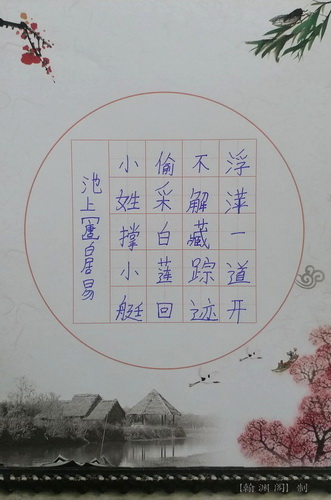 池上白居易
小姓撑小艇
偷采白蓮回
不解藏踪迹
浮萍一道开
【翰渊阁】制